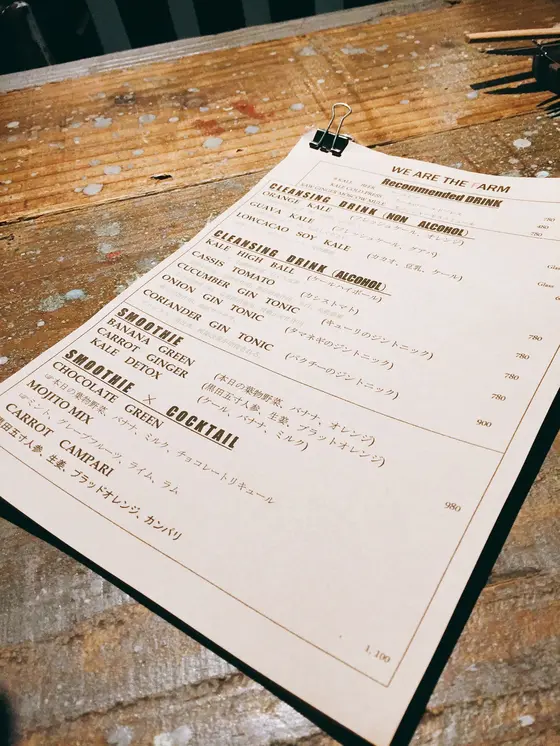 WE ARE THE FARM
Recommended DRINK
KALE BEER
780
480
CLEANSING DRINK (NON ALCOHOL)
780
ORANGE KALE (フレッシュケール、オレンジ)
GUAVA KALE (フレッシュケール、グアバ)
Glass
LOWCACAO SOY KALE (カカオ、豆乳、ケール)
CLEANSING DRINK (ALCOHOL)
Glass
KALE HIGH BALL (ケールハイボール)
CASSIS TOMATO (カシストマト)
780
CUCUMBER GIN TONIC (キューリのジントニック)
780
ONION GIN TONIC (タマネギのジントニック)
780
CORIANDER GIN TONIC (パクチーのジントニック)
780
900
SMOOTHIE
BANANA GREEN (本日の葉物野菜、バナナ、オレンジ)
CARROT GINGER (黒田五寸人参、生姜、ブラットオレンジ)
KALE DETOX (ケール、バナナ、ミルク)
980
SMOOTHIE × COCKTAIL
CHOCOLATE GREEN
☞本日の葉物野菜、バナナ、ミルク、チョコレートリキュール
MOJITO MIX
☞ミント、グレープフルーツ、ライム、ラム
CARROT CAMPARI
黒田五寸人参、生姜、ブラッドオレンジ、カンパリ
1,100